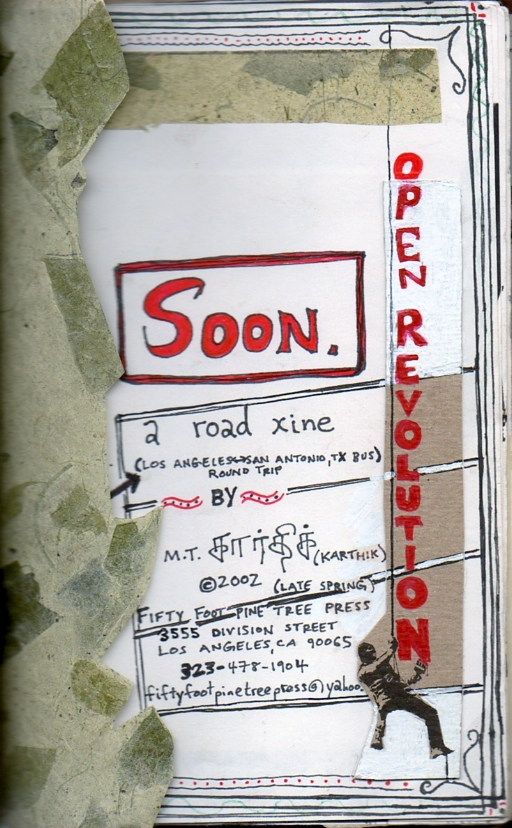 SOON.
a road xine
(LOS ANGELES↔SAN ANTONIO, TX BUS)
ROUND TRIP
BY
M.T. கார்திக் (KARTHIK)
©2002 (LATE SPRING)
FIFTY FOOT PINE TREE PRESS
3555 DIVISION STREET
LOS ANGELES, CA 90065
323-478-1904
fiftyfootpinetreepress@yahoo.
OPEN REVOLUTION